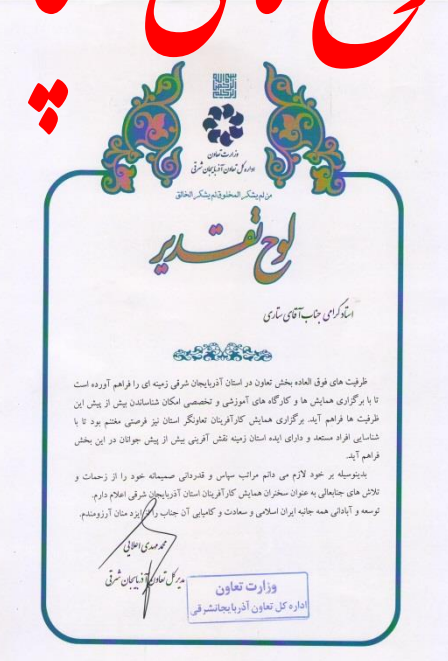 وزارت تعاون
اداره کل تعاون آذربایجان شرقی
من لم یشکر المخلوق لم یشکر الخالق
لوح تقدیر
استاد گرامی جناب آقای ستاری
ظرفیت های فوق العاده بخش تعاون در استان آذربایجان شرقی زمینه ای را فراهم آورده است
تا با برگزاری همایش ها و کارگاه های آموزشی و تخصصی امکان شناساندن بیش از پیش این
ظرفیت ها فراهم آید. برگزاری همایش کارآفرینان تعاونگر استان نیز فرصتی مغتنم بود تا با
شناسایی افراد مستعد و دارای ایده استان زمینه نقش آفرینی بیش از پیش جوانان در این بخش
فراهم آید.
بدینوسیله بر خود لازم می دانم مراتب سپاس و قدردانی صمیمانه خود را از زحمات و
تلاش های جنابعالی به عنوان سخنران همایش کارآفرینان استان آذربایجان شرقی اعلام دارم.
توسعه و آبادانی همه جانبه ایران اسلامی و سعادت و کامیابی آن جناب را از ایزد منان آرزومندم.
محمد مهدی اعلایی
مدیر کل تعاون آذربایجان شرقی
وزارت تعاون
اداره کل تعاون آذربایجانشرقی